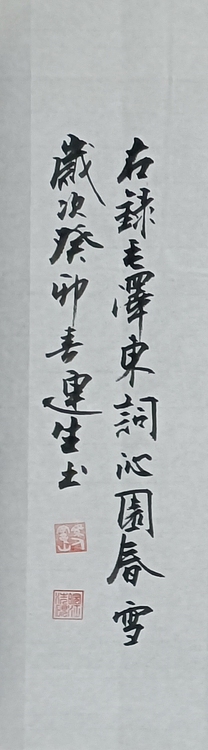 右録毛澤東詞沁園春雪
歲次癸卯喜連生书